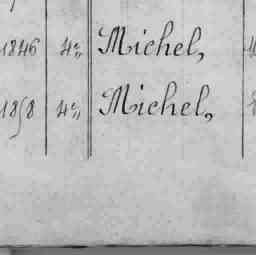 1846 4e,, Michel,
1858 4e,, Michel,